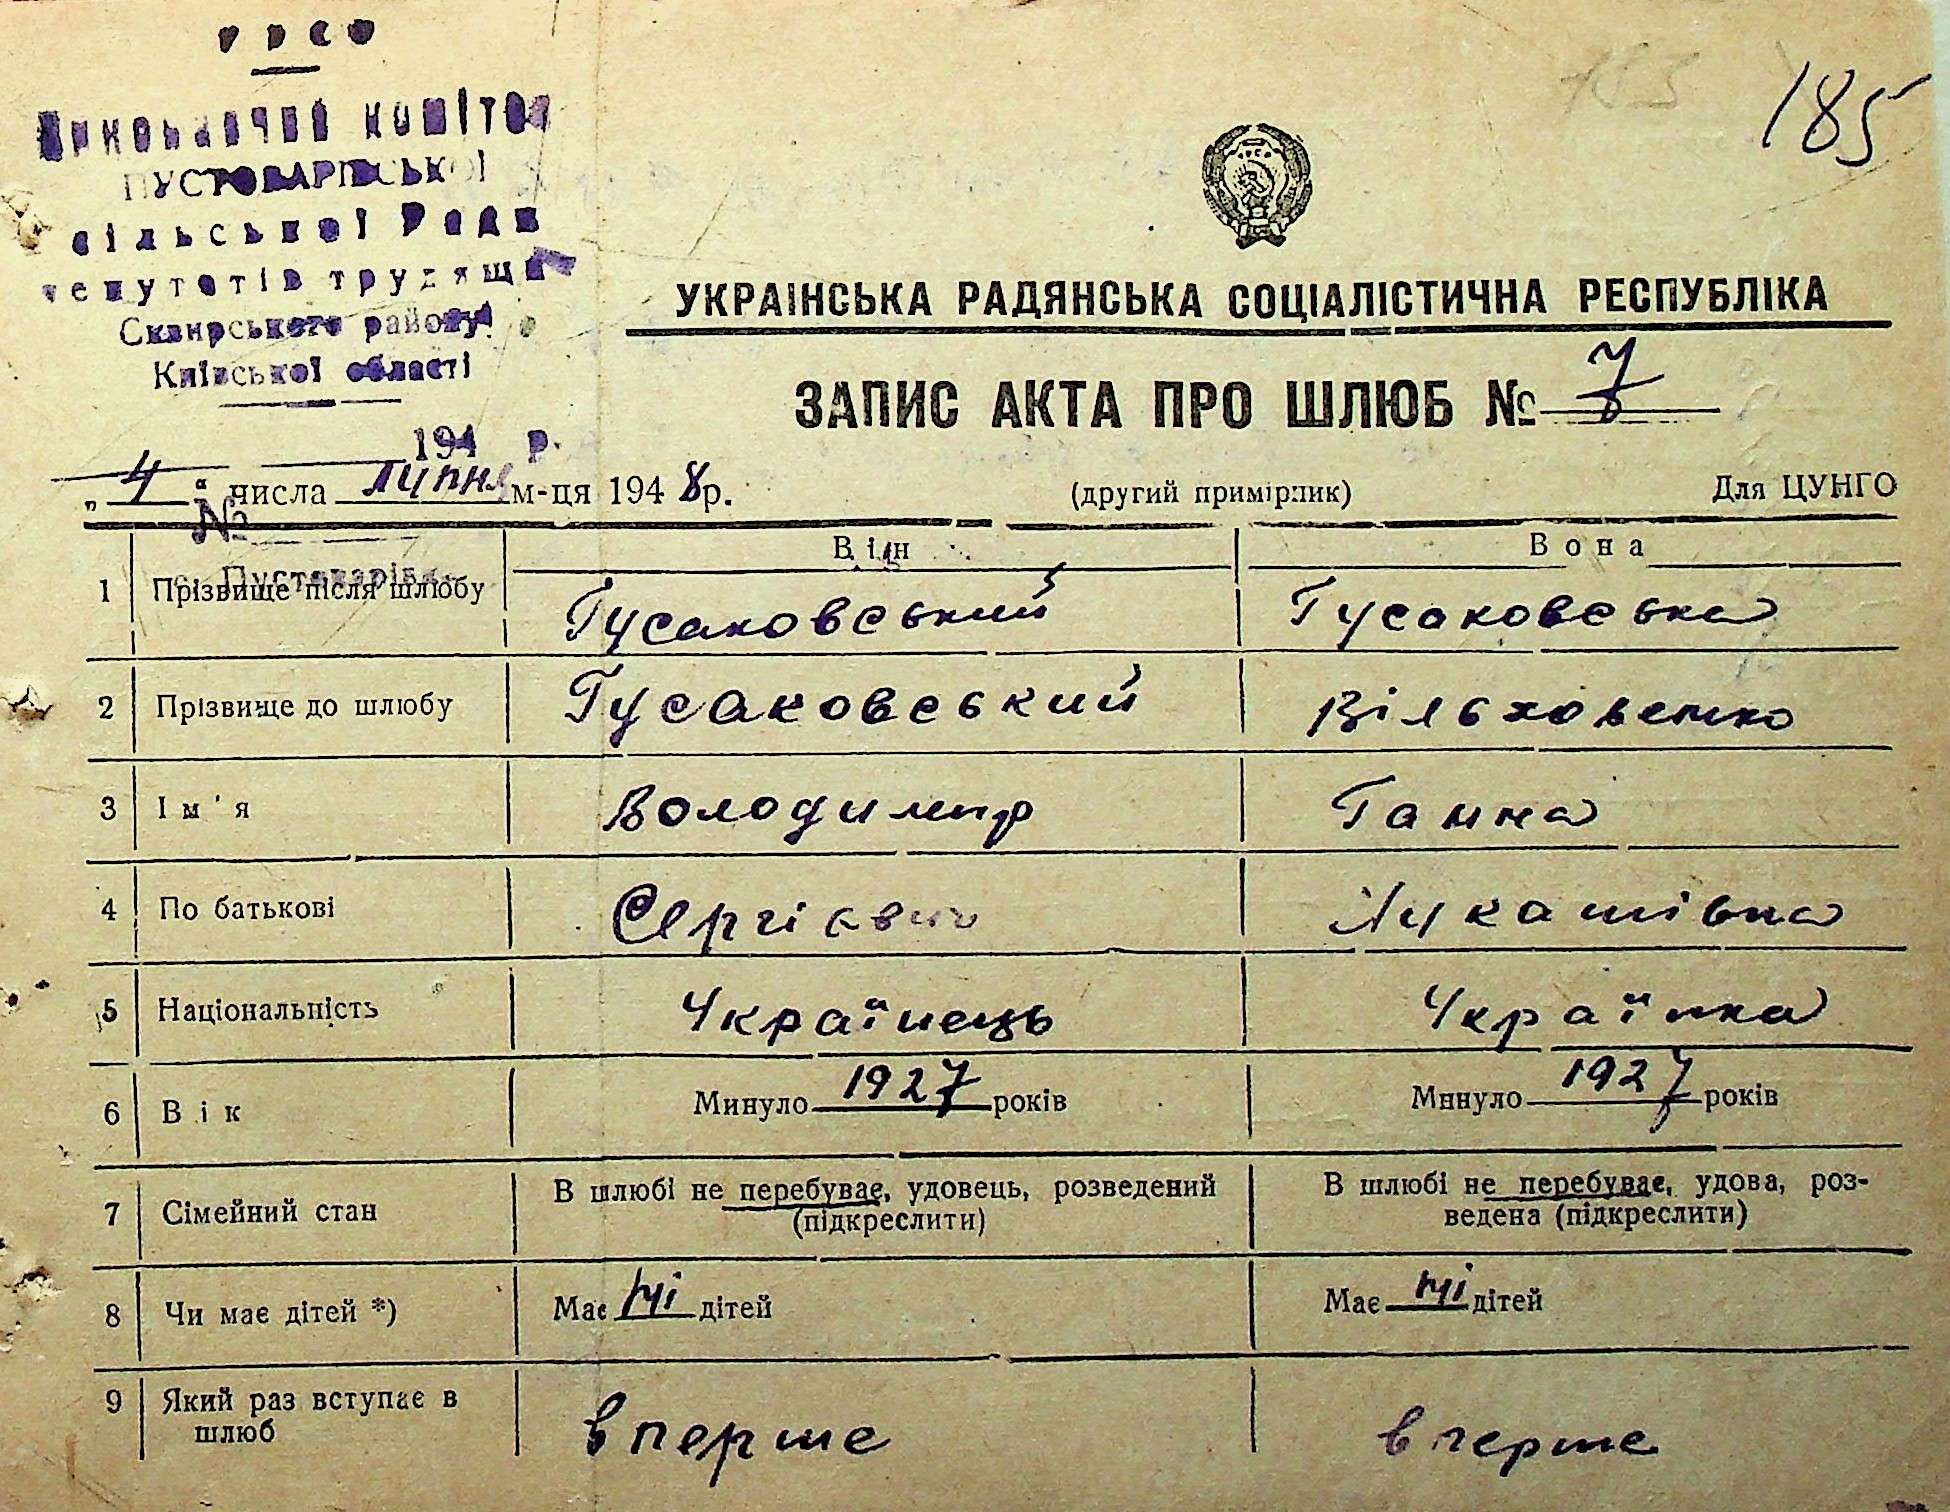 УРСР
Виконавчий комітет
ПУСТОВАРІВСЬКОЇ
сільської Ради
депутатів трудящих
Сквирського району
Київської області
194 р.
№
с. Пустоварівка
185
185
УКРАЇНСЬКА РАДЯНСЬКА СОЦІАЛІСТИЧНА РЕСПУБЛІКА
ЗАПИС АКТА ПРО ШЛЮБ № 7
„4“ числа липня м-ця 1948р. (другий примірник) Для ЦУНГО
Він Вона
1 Прізвище після шлюбу Гусаковський Гусаковська
2 Прізвище до шлюбу Гусаковський Вільховенко
3 Ім'я Володимир Ганна
4 По батькові Сергієвич Лукашівна
5 Національність Українець Українка
6 Вік Минуло 1927 років Минуло 1927 років
7 Сімейний стан В шлюбі не перебуває, удовець, розведений (підкреслити) В шлюбі не перебуває, удова, роз-
ведена (підкреслити)
8 Чи має дітей *) Має ні дітей Має ні дітей
9 Який раз вступає в шлюб вперше вперше